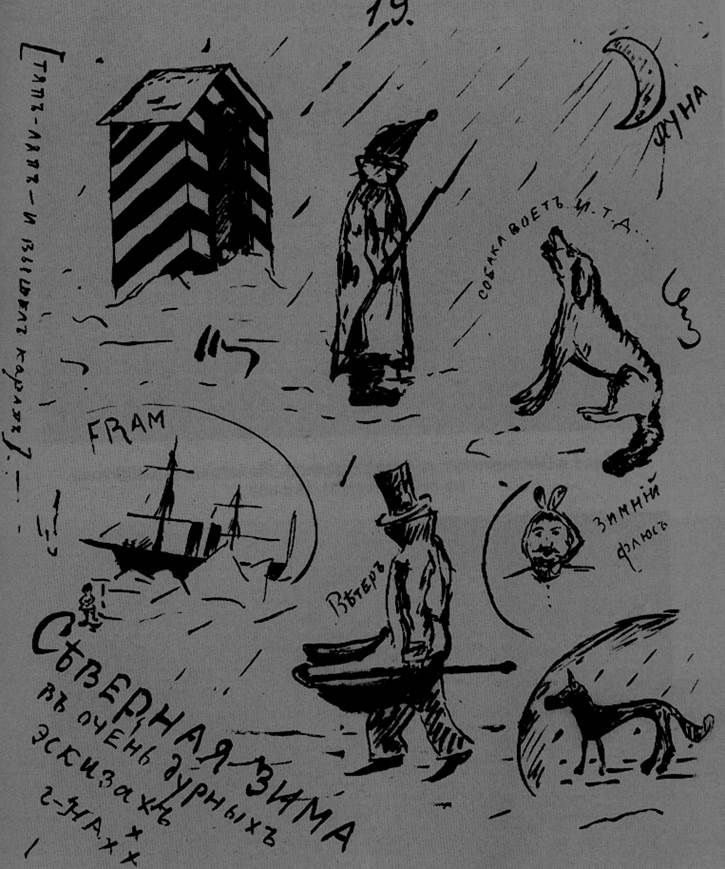 19.
[ТЯПЪ-ЛЯПЪ — И ВЫШЕЛЪ КОРАБЛЬ]
ЛУНА
СОБАКА ВОЕТЪ И. Т. Д...
FRAM
ВѢТЕРЪ
ЗИМНІЙ
ФЛЮСЪ
СѢВЕРНАЯ ЗИМА
ВЪ ОЧЕНЬ ДУРНЫХЪ
ЭСКИЗАХЪ
Г-НА x x x